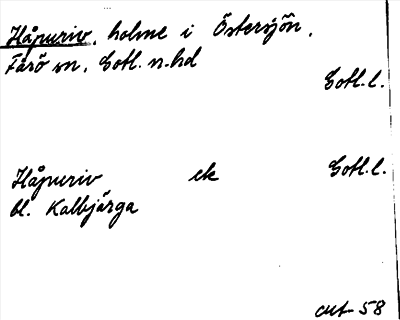 Håpuriv, holme i Östersjön,
Fårö sn, Gotl. n. hd
Gotl. l.
Håpuriv ek Gotl. l.
bl. Kalbjärga